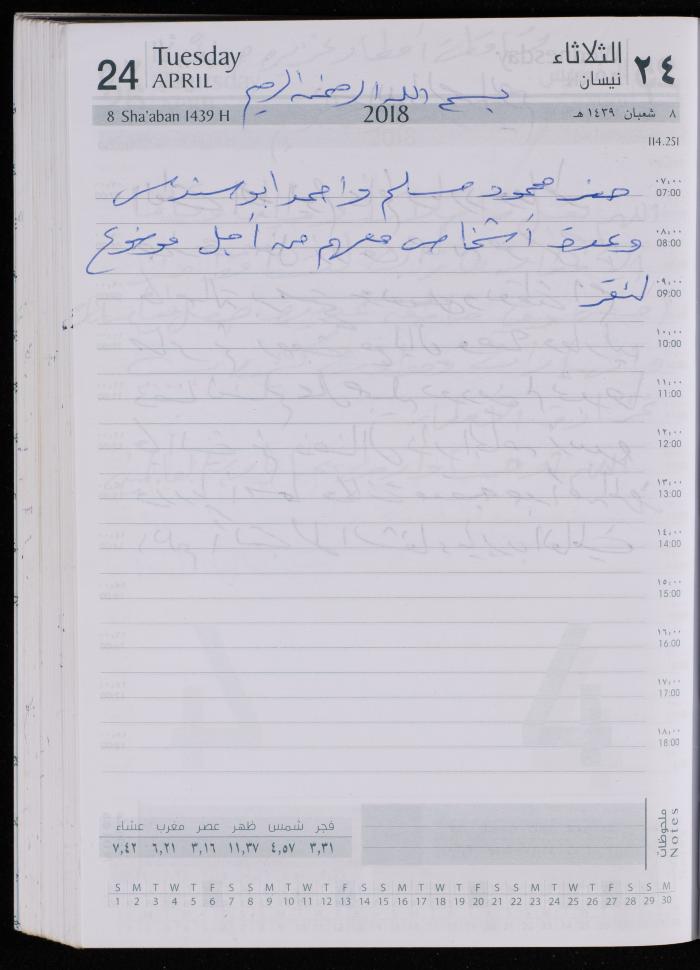 24 Tuesday APRIL
الثلاثاء نيسان ٢٤
بسم الله الرحمن الرحيم
8 Sha'aban 1439 H 2018 ٨ شعبان ١٤٣٩ هـ
114.251
٠٧:٠٠ 07:00
حضر محمود مسلم واحمد ابو سندس
٠٨:٠٠ 08:00
وعدة أشخاص معهم من أجل موضوع
٠٩:٠٠ 09:00
١٠:٠٠ 10:00
١١:٠٠ 11:00
١٢:٠٠ 12:00
١٣:٠٠ 13:00
١٤:٠٠ 14:00
١٥:٠٠ 15:00
١٦:٠٠ 16:00
١٧:٠٠ 17:00
١٨:٠٠ 18:00
ملحوظات Notes
فجر شمس ظهر عصر مغرب عشاء
٣,٣١ ٤,٥٧ ١١,٣٧ ٣,١٦ ٦,٢١ ٧,٤٢
S M T W T F S S M T W T F S S M T W T F S S M T W T F S S M
1 2 3 4 5 6 7 8 9 10 11 12 13 14 15 16 17 18 19 20 21 22 23 24 25 26 27 28 29 30